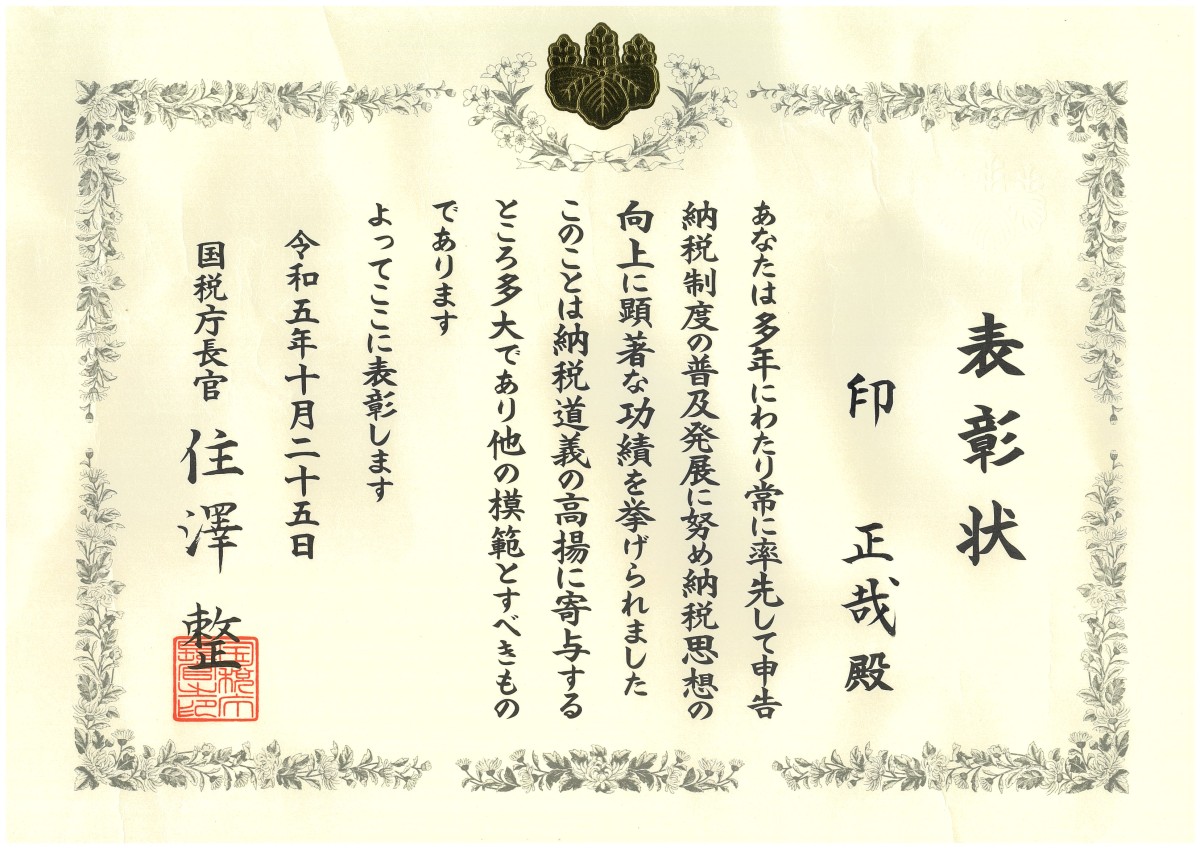 表彰状
印 正哉 殿
あなたは多年にわたり常に率先して申告
納税制度の普及発展に努め納税思想の
向上に顕著な功績を挙げられました
このことは納税道義の高揚に寄与する
ところ多大であり他の模範とすべきもの
であります
よってここに表彰します
令和五年十月二十五日
国税庁長官 住澤 整